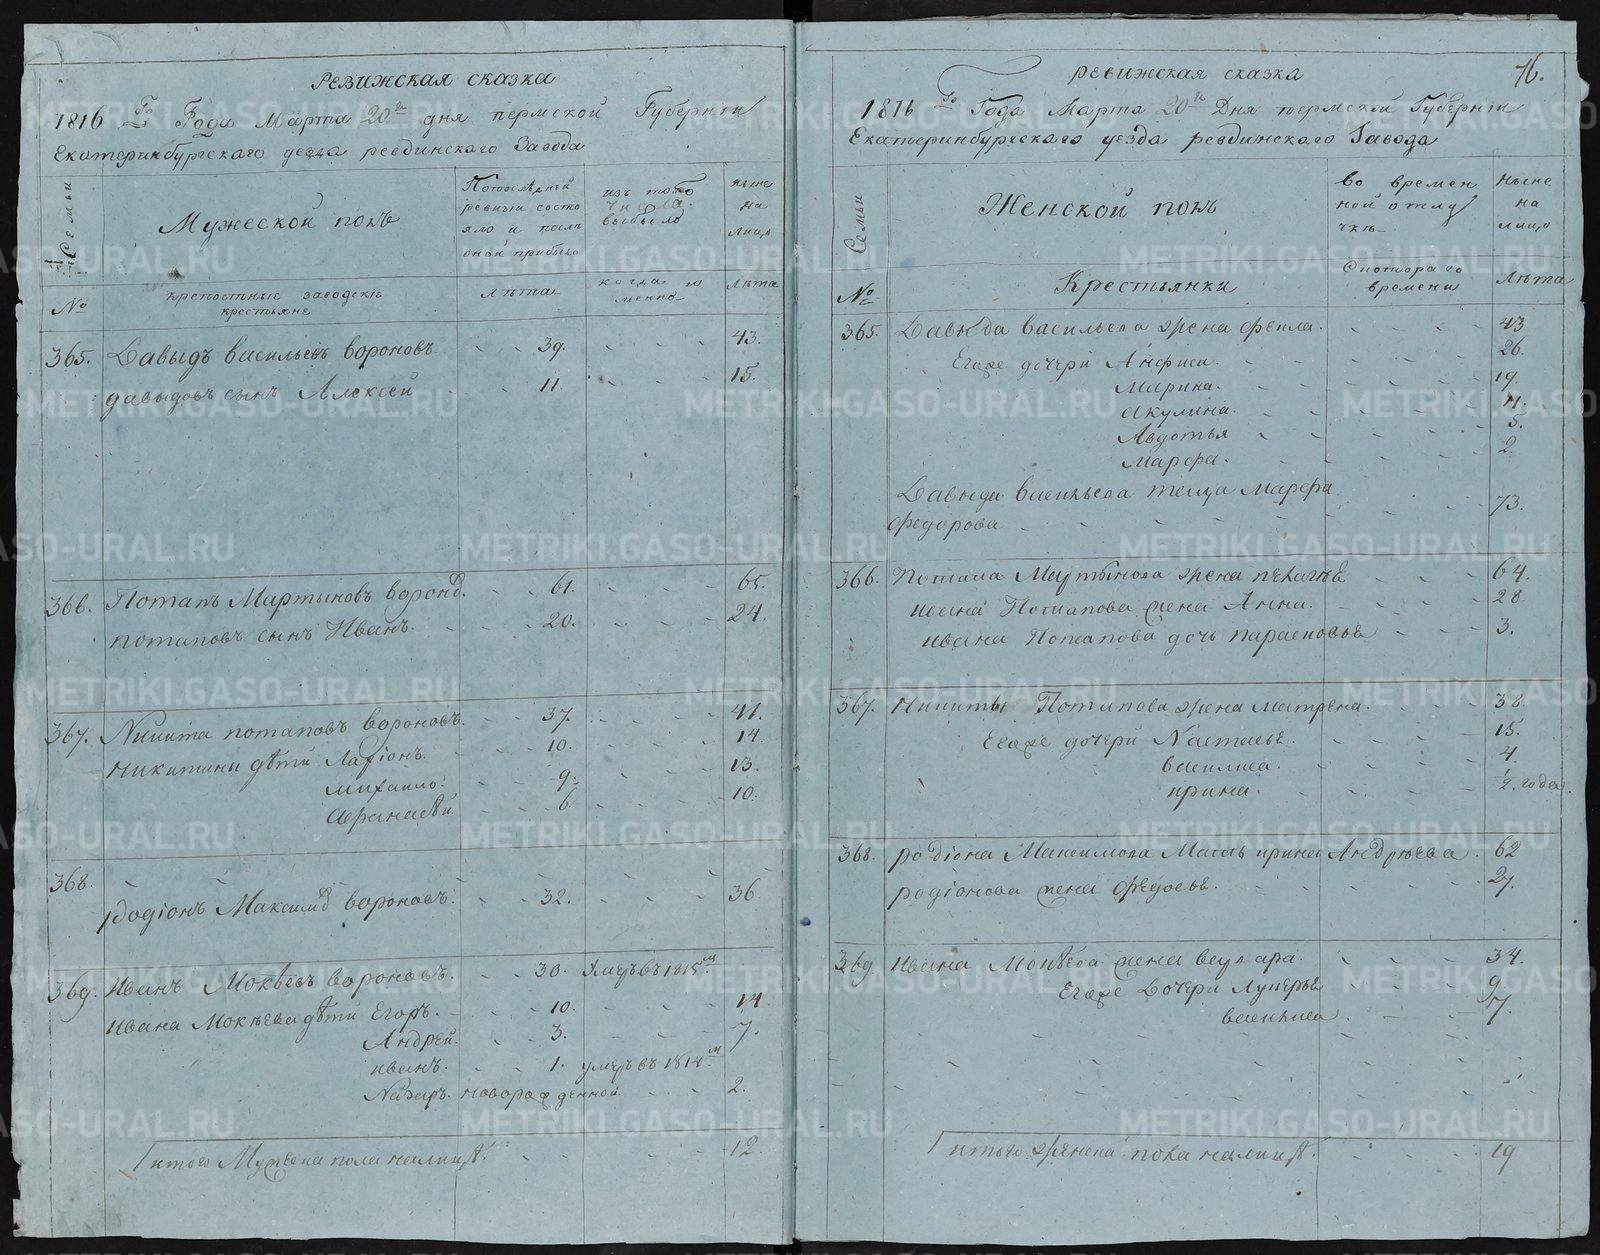 Ревижская сказка
1816 го Года Марта 20го дня пермской Губернїи
Екатеринбургскаго уезда ревдинскаго Завода
Семьи
Мужеской полъ
Попослѣдней
ревизїи состо
яло и посль
оной прибыло
изъ того
числа
выбыло
ныне
на
лицо
№
крепостные заводскїе
крестьяне
лѣта
когда и
менно
лѣта
365. Давыдъ васильевъ вороновъ 39. 43.
давыдовъ сынъ Алексей 11. 15.
366. Потапъ Мартыновъ воронов. 61. 65.
потаповъ сынъ Иванъ. 20. 24.
367. Никита потаповъ вороновъ. 37. 41.
никитины дѣти Ларїонъ. 10. 14.
михаило. 9. 13.
афанасей 6. 10.
368.
родїонъ Максимов вороновъ. 32. 36
369. Иванъ Мокѣевъ вороновъ. 30. умеръ въ 1815м
Ивана Мокѣева дѣти Егоръ. 10. 14
Андрей. 3. 7.
иванъ. 1. умеръ въ 1814м
Назаръ. новорожденной 2.
итого Мужеска пола налицо. 12.
76.
ревижская сказка
1816 го Года Марта 20го Дня пермской Губернїи
Екатеринбургскаго уезда ревдинскаго Завода
Семьи
Женской полъ
во времен
ной отлу
чкѣ
ныне
на
лицо
№
Крестьянки
Скотораго
времени
Лѣта
365. Давыда васильева жена фекла. 43
Егоже дочери Анфиса. 26
Марина. 19.
Акулина. 11.
Авдотья 5.
Марфа. 2.
Давыда васильева теща марфа
федорова 73.
366. Потапа Мартынова жена пелагѣя 64.
ивана Потапова жена Анна. 28
ивана Потапова дочь парасковья 3.
367. Никиты Потапова жена матрена. 38.
Егоже дочери Настасья. 15.
василиса. 4.
ирина. 1/2 года.
368. родїона Максимова Мать ирина Андрюева. 62
родїонова жена федосья. 27.
369. Ивана Мокѣева жена 34.
Егоже Дочери Лукерья 9.
василиса. 7.
итого женска пола налицо. 19
METRIKI.GASO-URAL.RU